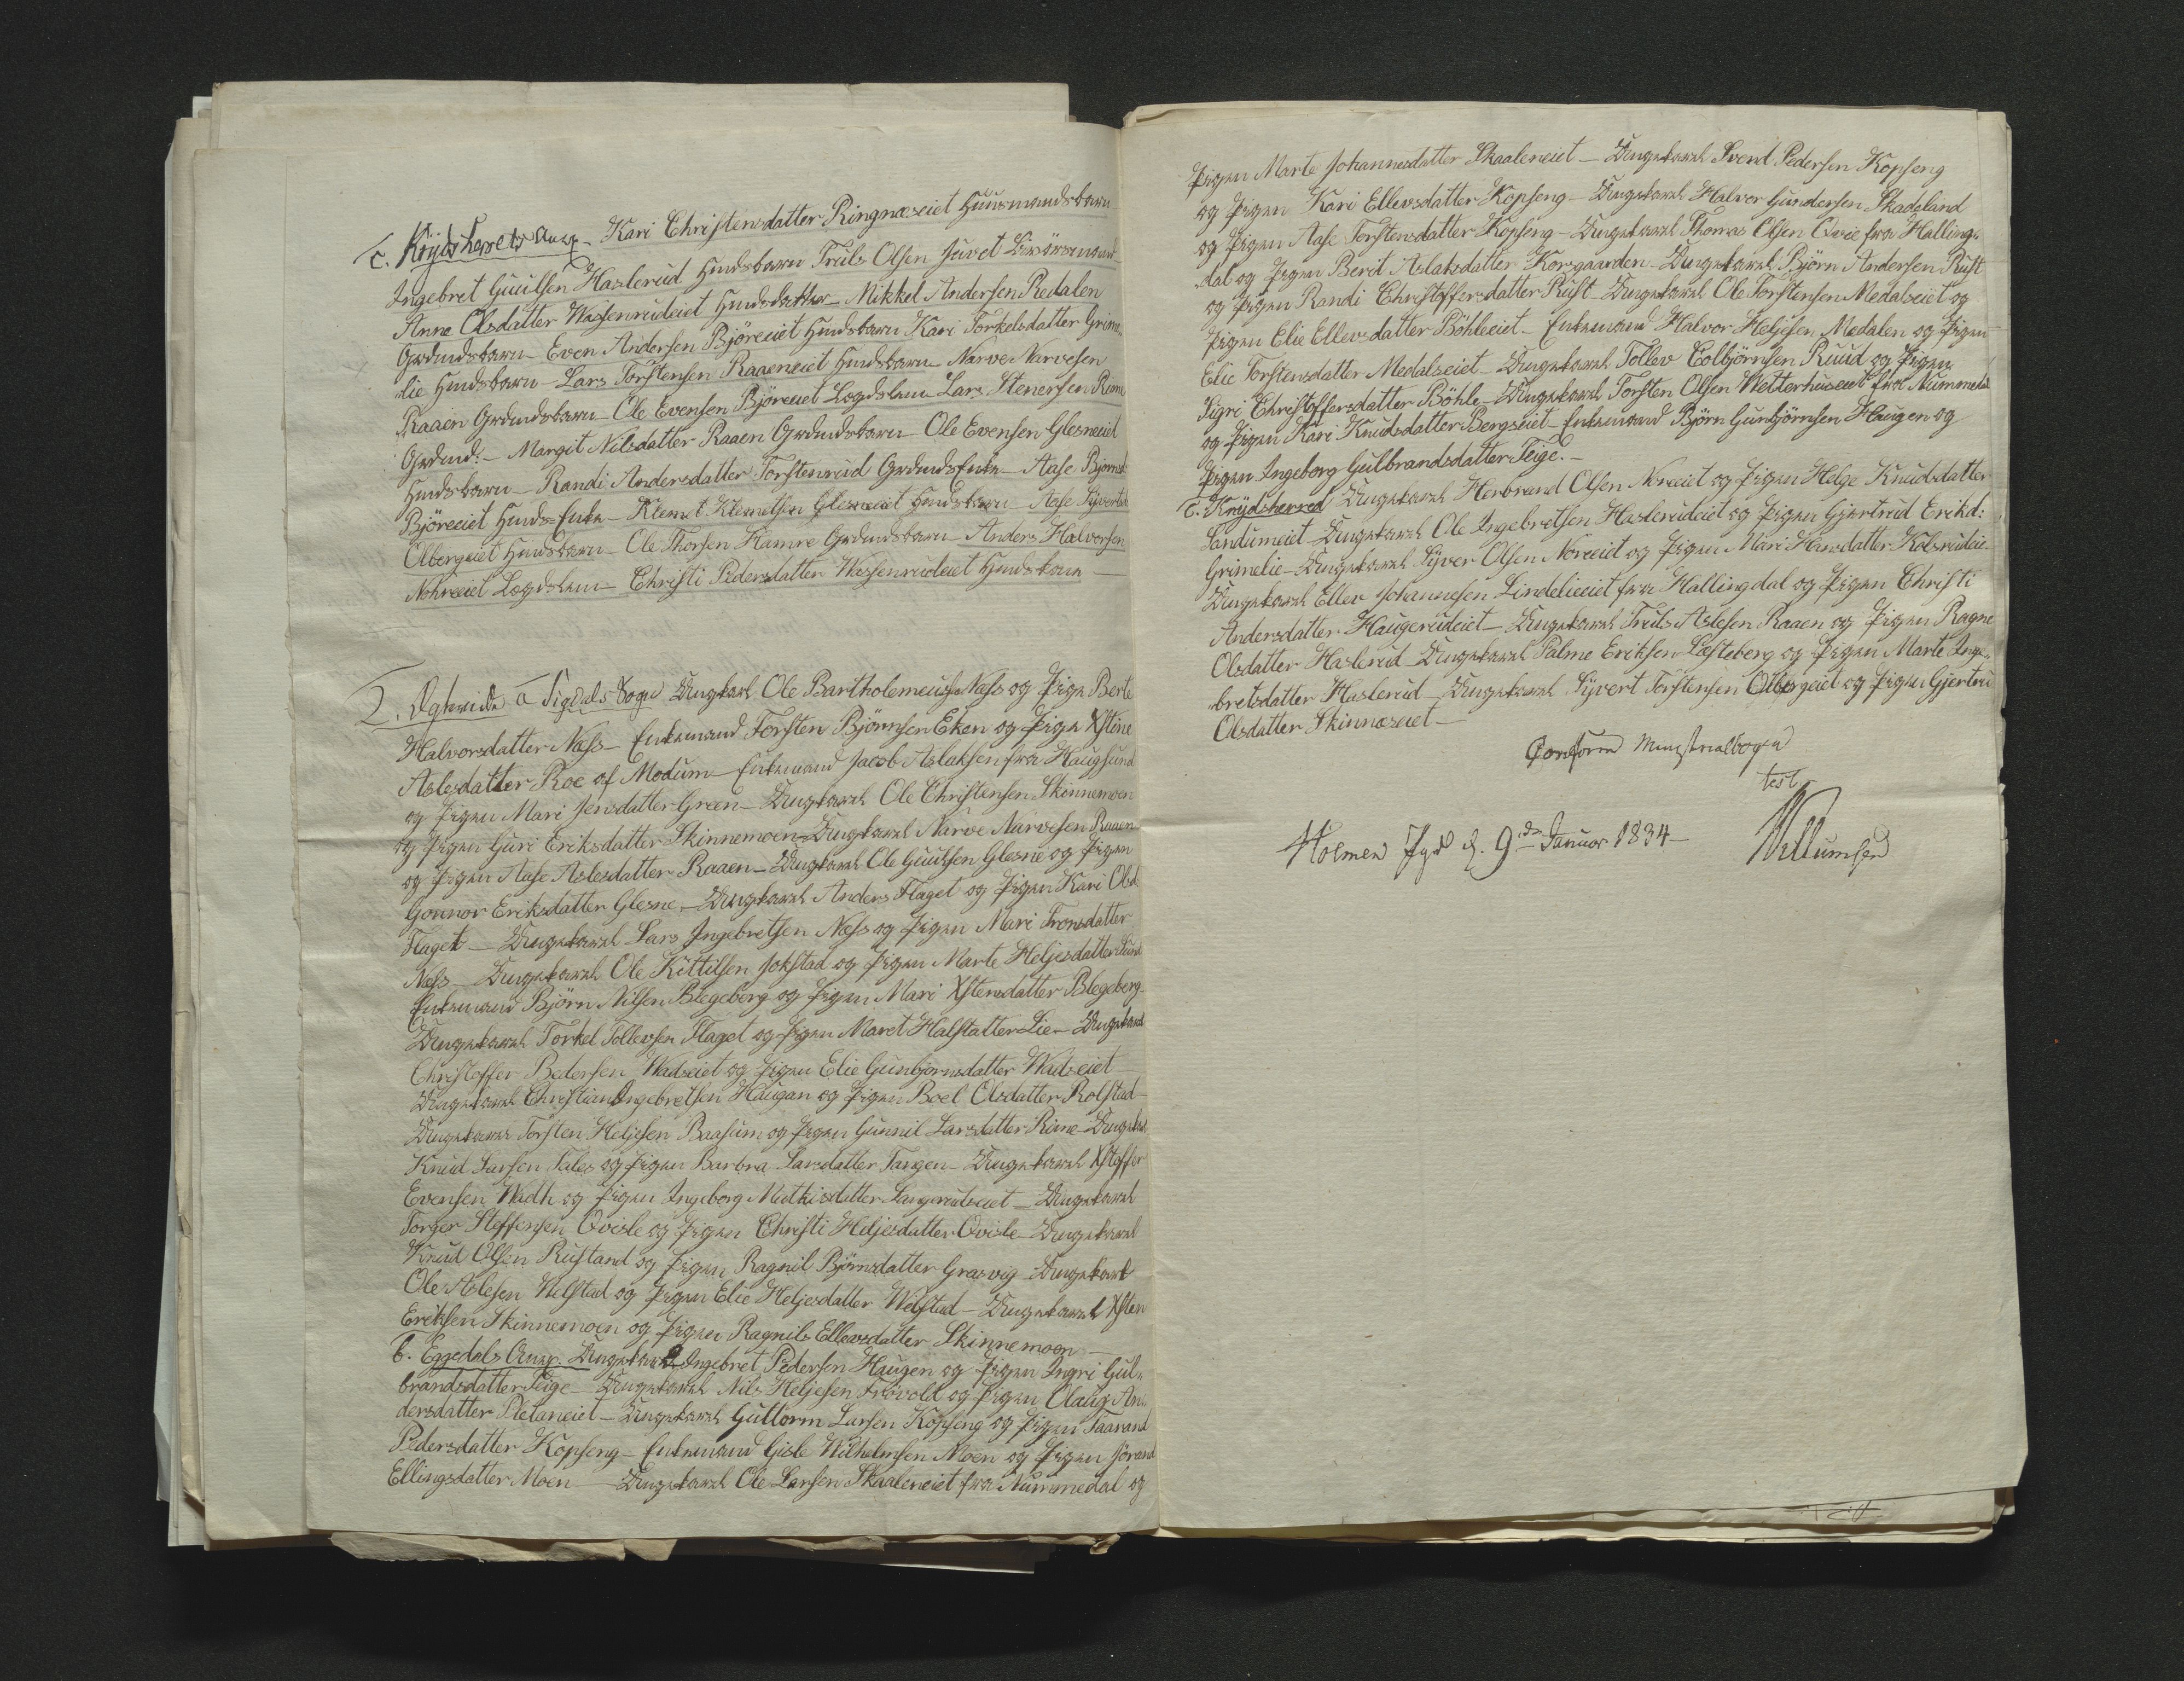 c. Krydsherets Anex – Kari Christensdatter Ringnæseiet Huusmandsbarn
Ingebret Guulsen Haslerud Hmdsbarn Truls Olsen Juvet
Anne Olsdatter Wassenrudeiet Hmdsdatter – Mikkel Andersen Redalen
Grdmdsbarn – Even Andersen Björeeiet Hmdsbarn Kari Torkelsdatter Grime-
lie Hmdsbarn – Lars Torstensen Raaeneiet Hmdsbarn – Narve Narvesen
Raaen Grdmdsbarn – Ole Evensen Björeeiet Lægdslem – Lars Stenersen Rime
Grdmd: – Margit Nilsdatter Raaen Grdmdsbarn – Ole Evensen Glesneeiet
Hmdsbarn – Randi Andersdatter Torstenrud Grdmds Enke – Aase Björnsd
Björeeiet Hmds Enke – Klemet Klemetsen Glesneeiet Hmdsbarn – Aase Syvertsd
Olbergeiet Hmdsbarn – Ole Thorsen Hamre Grdmdsbarn – Anders Halvorsen
Nohreeiet Lægdslem – Christi Pedersdatter Wassenrudeiet Hmds
2. Ægteviede a Sigdals Sogn Ungkarl Ole Bartholemeusen Næss og Pige Berte
Halvorsdatter Næss – Enkemand Torsten Björnsen Eken og Pige Xstine
Aslesdatter Roe af Modum – Enkemand Jacob Aslaksen fra Haugsund
og Pigen Mari Jensdatter Green – Ungkarl Ole Christensen Skinnemoen
og Pigen Guri Eriksdatter Skinnemoen – Ungkarl Narve Narvesen Raaen
og Pigen Aase Aslesdatter Raaen – Ungkarl Ole Guulsen Glesne og Pigen
Gonnor Eriksdatter Glesne – Ungekarl Anders Flaget og Pigen Kari Olsd
Flaget – Ungekarl Lars Ingebretsen Næss og Pigen Mari Tronsdatter
Næss – Ungekarl Ole Kittilsen Jokstad og Pigen Marte Heljesdatter
Enkemand Björn Nilsen Blegeberg og Pigen Mari Xstensdatter Blegeberg
Ungekarl Torkel Tollevsen Flaget og Pigen Maret Halstatter Lie – Ungekarl
Christoffer Pedersen Wadseiet og Pigen Elie Gunbjornsdatter Wadseiet
Ungekarl Christian Ingebretsen Haugan og Pigen Boel Olsdatter Rolstad –
Ungekarl Torsten Heljesen Baasum og Pigen Gunnil Larsdatter Rime – Ungekarl
Knud Larsen og Pigen Barbra Larsdatter Tangen – Ungekarl Xstoffer
Evensen Wadh og Pigen Ingeborg Mathisdatter Langerudseiet – Ungekarl
Torger Steffensen Qvisle og Pigen Christi Heljesdatter Qvisle – Ungekarl
Knud Olsen Rustand og Pigen Ragnil Björnsdatter Grasvig – Ungekarl
Ole Aslesen Welstad og Pigen Elie Heljesdatter Welstad – Ungekarl Xsten
Eriksen Skinnemoen og Pigen Ragnils Ellevsdatter Skinnemoen –
b. Eggedals Anex. Ungekarl Ingebret Pedersen Haugen og Pigen Ingri Gul-
brandsdatter Teige – Ungekarl Nils Heljesen Frövold og Pigen Olaug An-
dersdatter Pletaneiet – Ungekarl Guttorm Larsen Kopseng og Pigen Taarand
Pedersdatter Kopseng – Enkemand Gisle Wilhelmsen Moen og Pigen Jörand
Ellingsdatter Moen – Ungekarl Ole Larsen Skaaleneiet fra Nummedal og
Pigen Marte Johannesdatter Skaaleneiet – Ungekarl Svend Pedersen Kopseng
og Pigen Kari Ellevsdatter Kopseng – Ungekarl Halvor Gundersen Skadeland
og Pigen Aase Torstensdatter Kopseng – Ungekarl Thomas Olsen Qvie fra Halling-
dal og Pigen Berit Aslaksdatter Korsgaarden – Ungekarl Björn Andersen Rust
og Pigen Randi Christoffersdatter Rust – Ungekarl Ole Torstensen Medalseiet og
Pigen Elie Ellevsdatter Böhleeiet – Enkemand Halvor Heljesen Medalen og Pigen
Elie Torstensdatter Medalseiet – Ungekarl Tollev Colbjörnsen Ruud og Pigen
Sigri Christoffersdatter Böhle – Ungekarl Torsten Olsen Wetterhuseiet fra Nummedal
og Pigen Kari Knudsdatter Bergseiet – Enkemand Björn Gunbjörnsen Haugen og
Pigen Ingeborg Gulbrandsdatter Teige. –
c. Krydsherred Ungekarl Herbrand Olsen Noreeiet og Pigen Helge Knudsdatter
Sandumeiet – Ungekarl Ole Ingebretsen Haslerudeiet og Pigen Gjertrud Eriksd:
Grimelie – Ungekarl Syver Olsen Noreeiet og Pigen Mari Hansdatter Kolsrudeie
Ungekarl Ellev Johannesen Lindelieeiet fra Hallingdal og Pigen Christi
Andersdatter Haugerudeiet – Ungekarl Truls Aslesen Raaen og Pigen Ragne
Olsdatter Haslerud – Ungekarl Palme Eriksen Læsteberg og Pigen Marte Inge-
bretsdatter Haslerud – Ungekarl Syvert Torstensen Olbergeiet og Pigen Gjertru
Olsdatter Skinnæseiet –
Conform Ministrialbogen
test.
Holmen Pgd d. 9de Januar 1834 – Willumsen